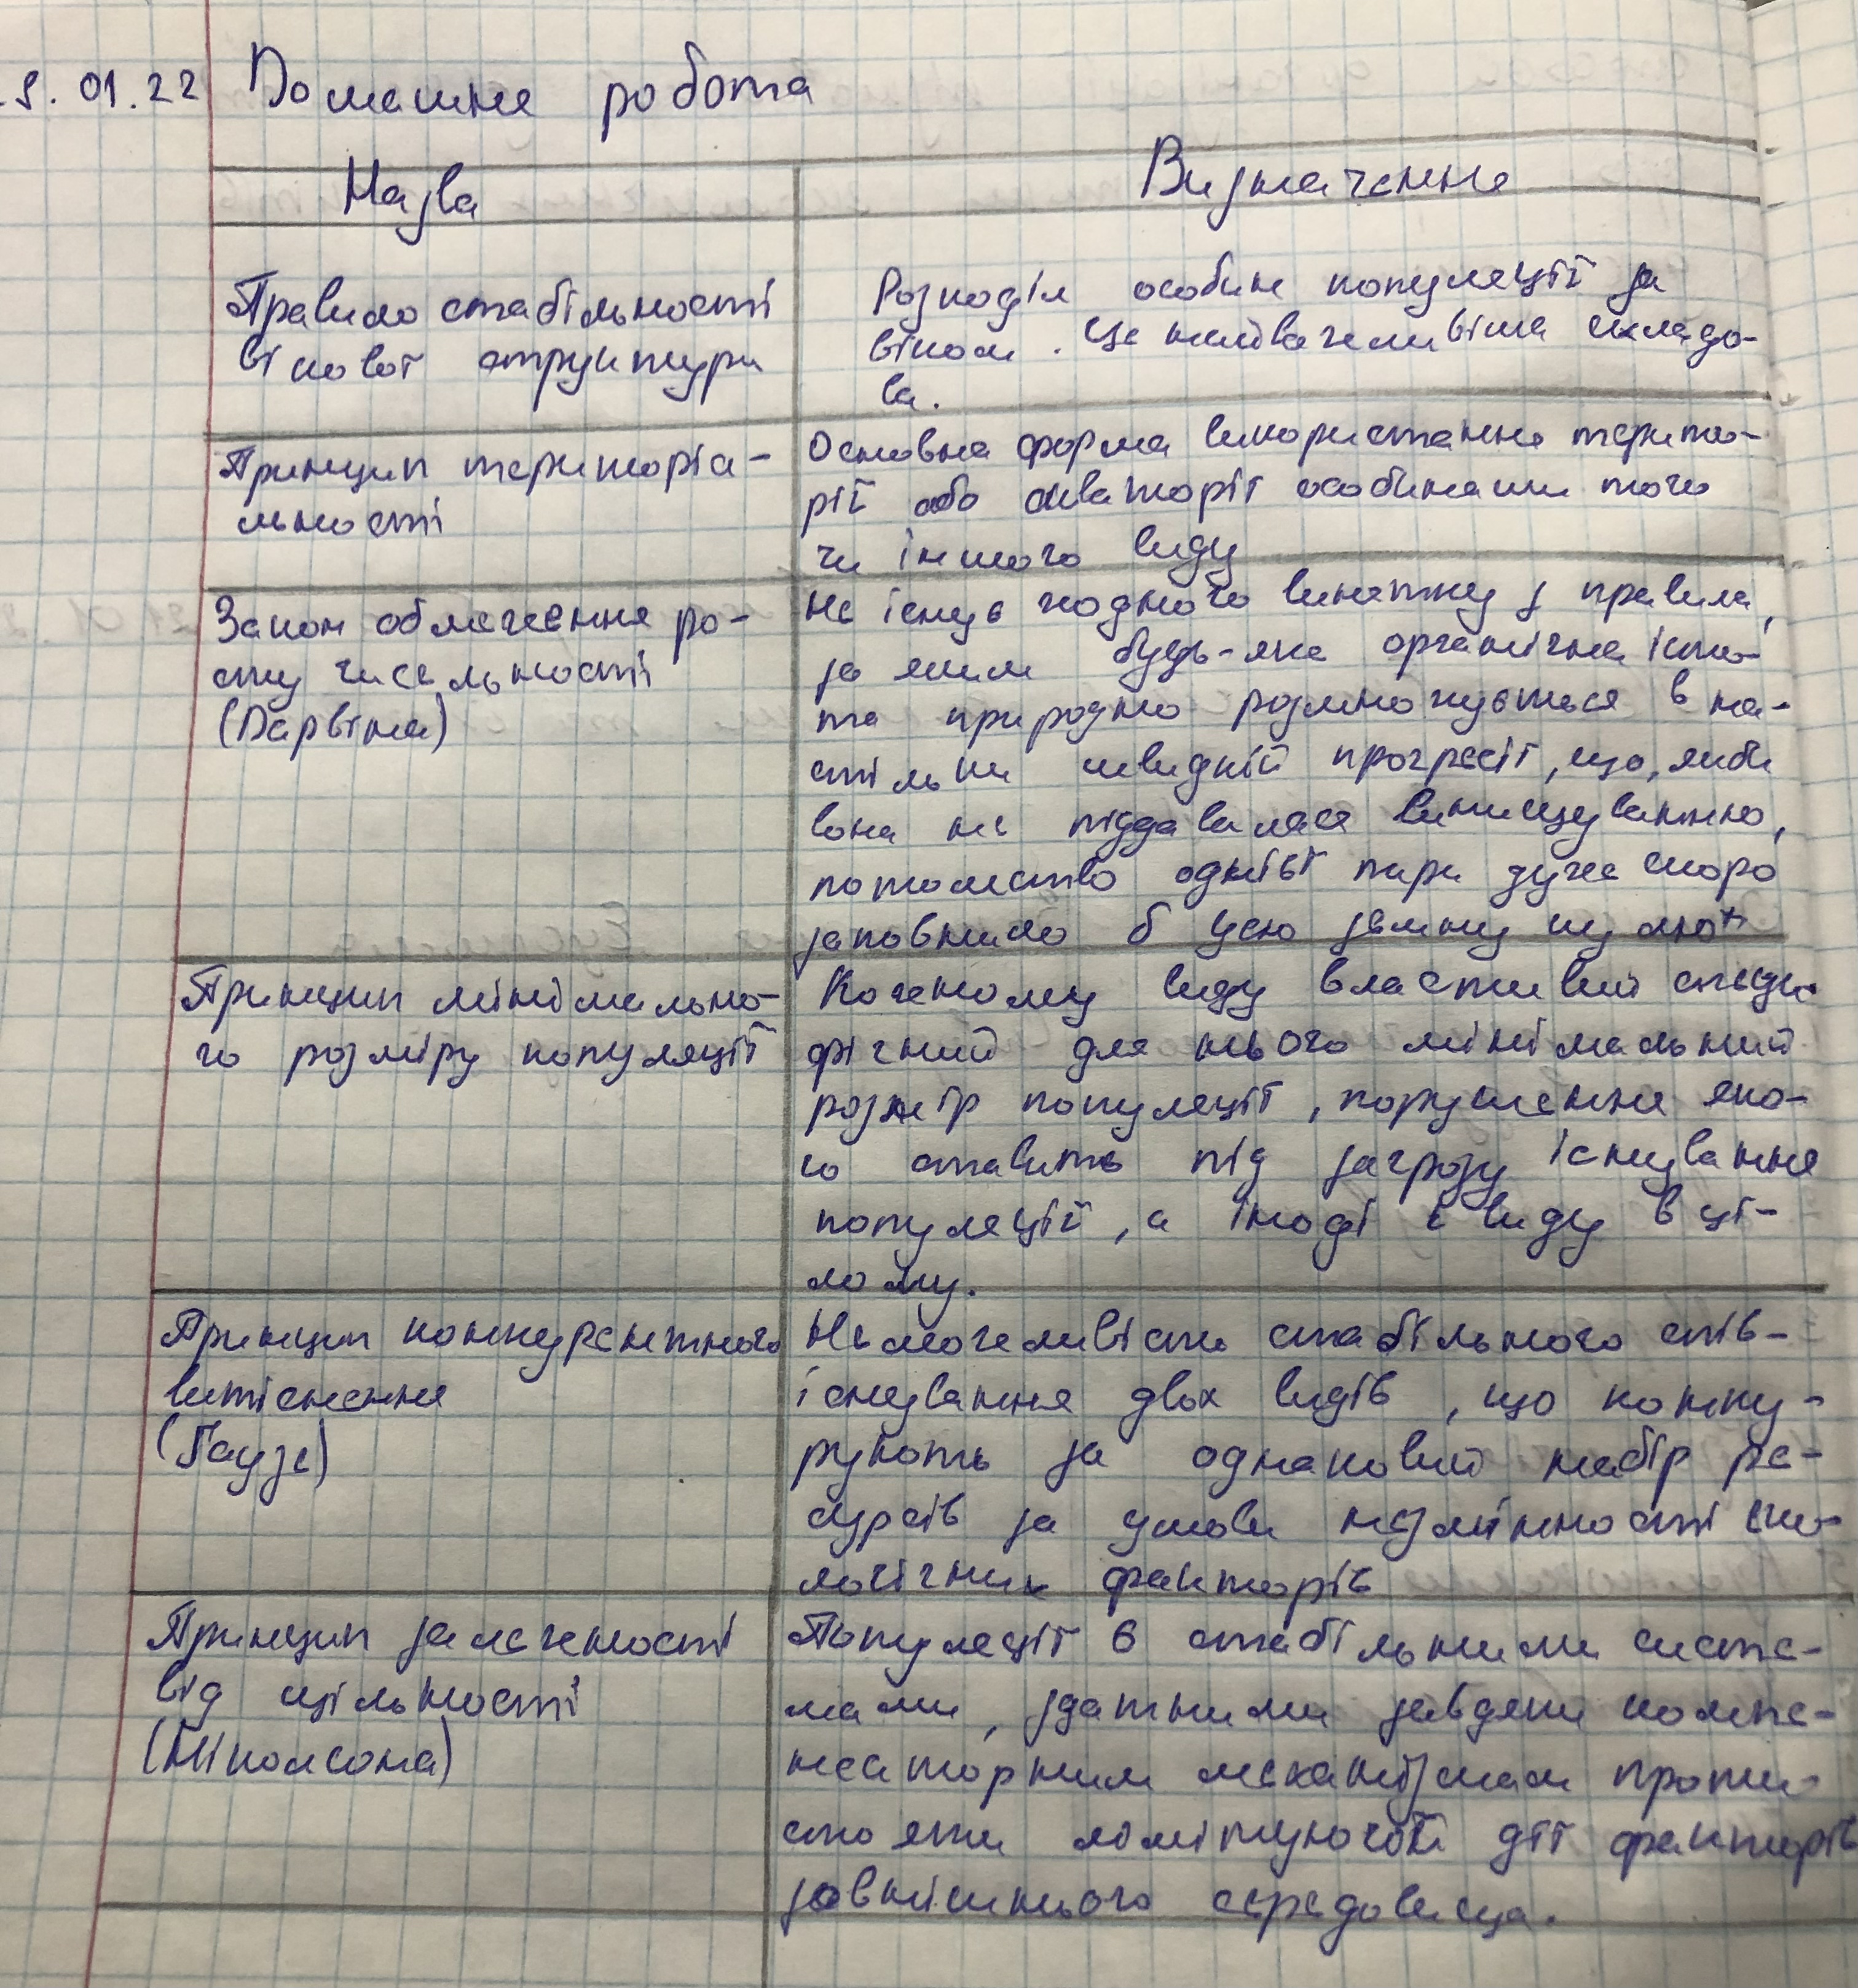 5.01.22 Домашня робота
Назва
Визначення
Правило стабільності
вікової структури
Розподіл особин популяції за
віком. Це найважливіша складо-
ва.
Принцип територіа-
льності
Основна форма використання терито-
рії або акваторії особинами того
чи іншого виду
Закон обмеження ро-
сту чисельності
(Дарвіна)
Не існує жодного винятку з правила,
за яким будь-яка органічна істо-
та природно розмножується в на-
стільки швидкій прогресії, що, якби
вона не піддавалася винищуванню,
потомство однієї пари дуже скоро
заповнило б усю земну кулю
Принцип мінімально-
го розміру популяції
Кожному виду властивий специ-
фічний для нього мінімальний
розмір популяції, порушення яко-
го ставить під загрозу існування
популяції, а іноді й виду в ці-
лому.
Принцип конкурентного
витіснення
(Гаузе)
Неможливість стабільного спів-
існування двох видів, що конку-
рують за однаковий набір ре-
сурсів за умови незмінності еко-
логічних факторів
Принцип залежності
від щільності
(Ніколсона)
Популяції є стабільними систе-
мами, здатними завдяки компе-
нсаторним механізмам проти-
стояти лімітуючій дії факторів
зовнішнього середовища.